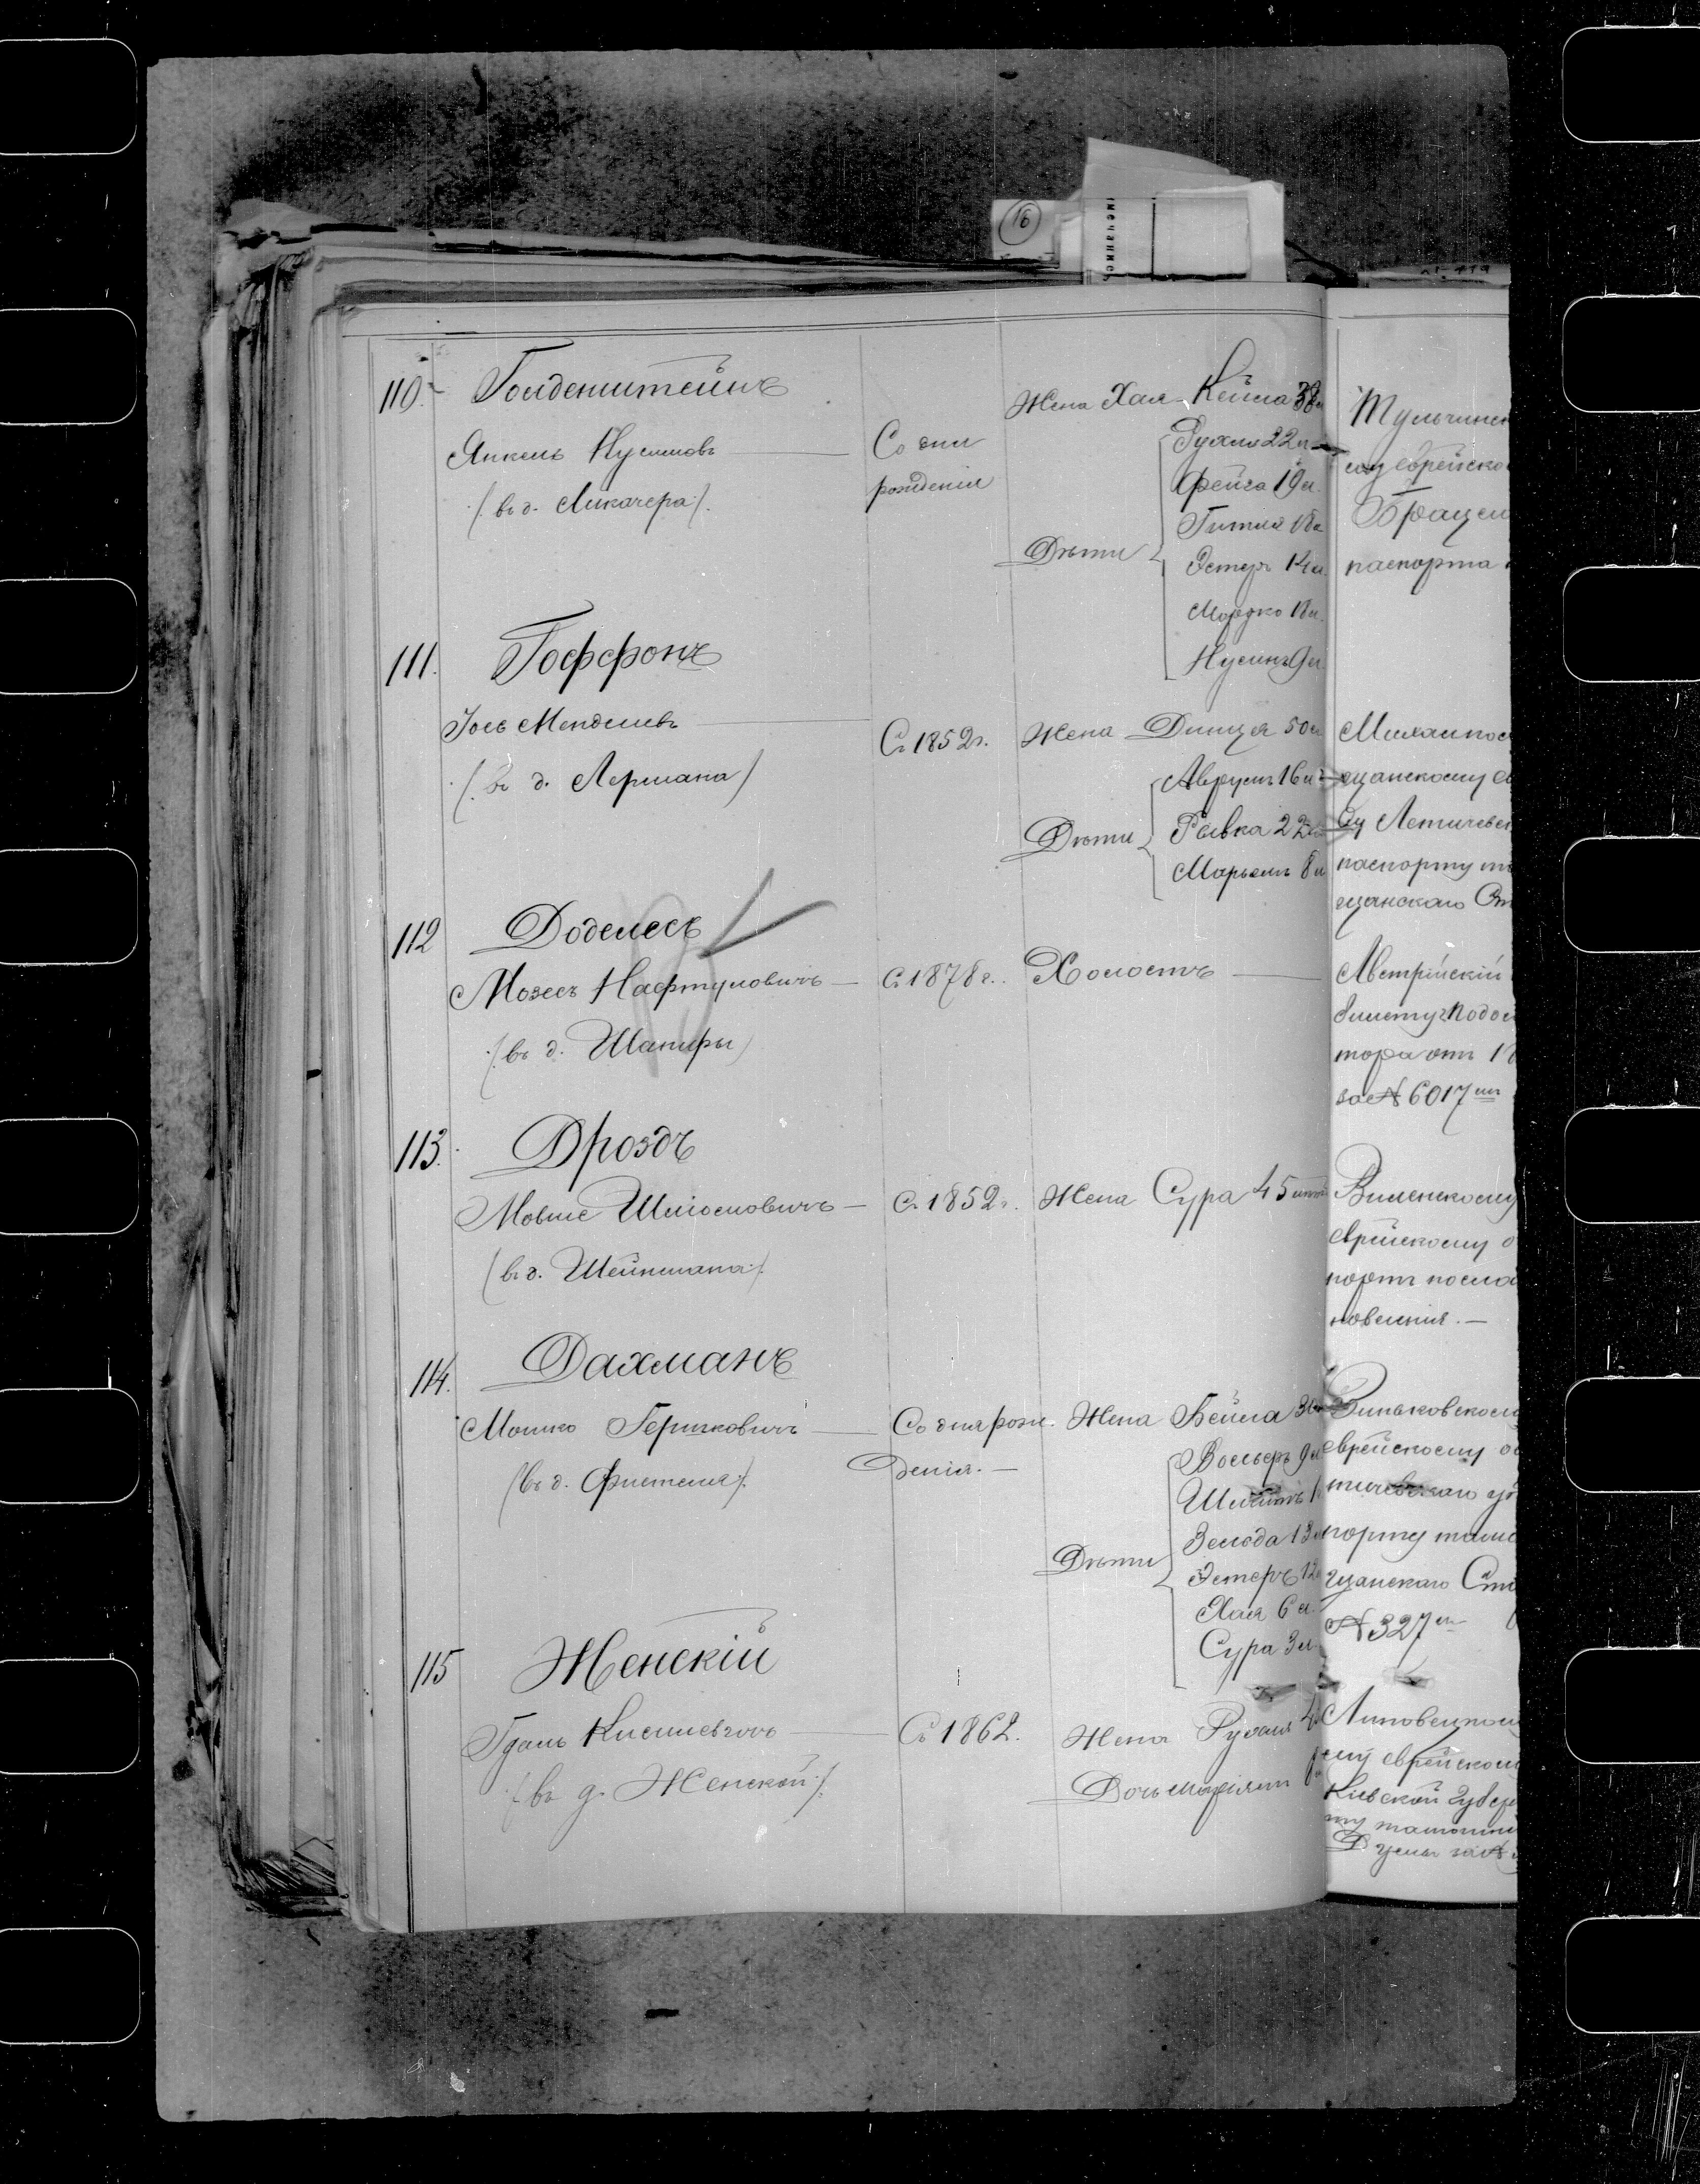 16
110. Гольденштейнъ
Янкель Нусимовъ
(въ д. Ликачера).
Со дня
рожденія
Жена Хая Кейла 38 л
Дѣти
Рухля 22 л
Фейга 19 л.
Гитля 18 л
Эстеръ 14 л.
Мордко 18 л.
Нусинъ 9 л
Тульчинск
му еврейско
Брацл
паспорта
111. Гоффонъ
Іось Менделевъ
(въ д. Лермана)
Съ 1852 г.
Жена Динця 50 л
Дѣти
Аврумъ 16 л
Ривка 22 л
Марьямъ 8 л
Михалпол
щанскому
ду Летичевск
паспорту
щанскаго Ст
112 Доделесъ
Мозесъ Нафтуловичъ
(въ д. Шапиры)
Съ 1878 г.
Холостъ
Австрійскій
билету Подол
тора отъ 1
за № 6017
113. Дроздъ
Мовше Шліомовичъ
(въ д. Шейнмана).
Съ 1852 г.
Жена Сура 45
Виленскому
еврейскому о
портъ посла
новленія.
114. Дахманъ
Мошко Гершковичъ
(въ д. Фиштеля).
Со дня рож
денія.
Жена Бейла 3
Дѣти
Вольфъ 9 л
Зельда 13 л
Эстеръ 12
Хая 6 л.
Сура 3 л
Зиньковском
еврейскому об
тичевскаго уѣ
порту
щанскаго Ст
№ 327
115 Женскій
Гдаль
(въ д. Женской).
Съ 1862.
Жена Рухля 4
Дочь Маріямъ
Липовецком
му еврейском
Кіевской губер
ту
Думы за №